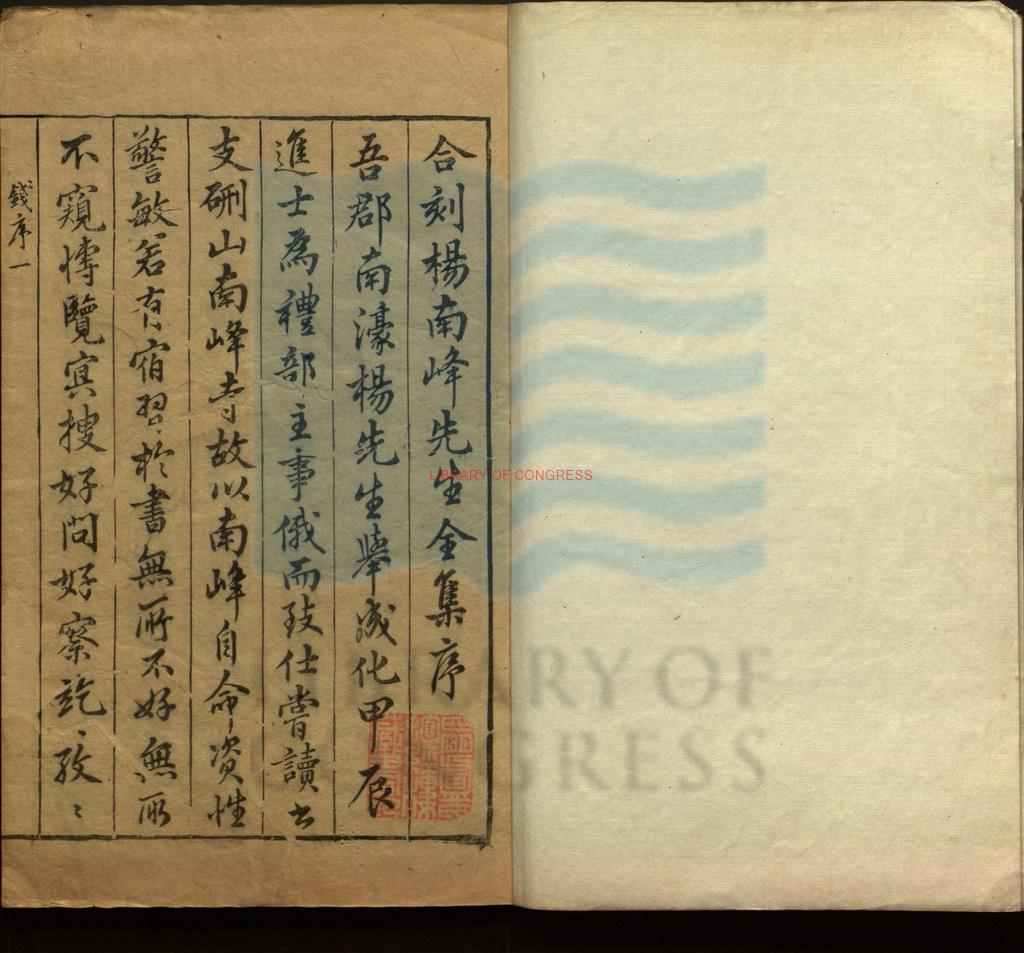 合刻楊南峰先生全集序
吾郡南濠楊先生舉成化甲辰
進士為禮部主事俄而致仕嘗讀書
支硎山南峰寺故以南峰自命資性
警敏若有宿習於書無所不好無所
不窺博覽冥搜好問好察訖孜〻
錢序一
LIBRARY OF CONGRESS
RY OF
GRESS